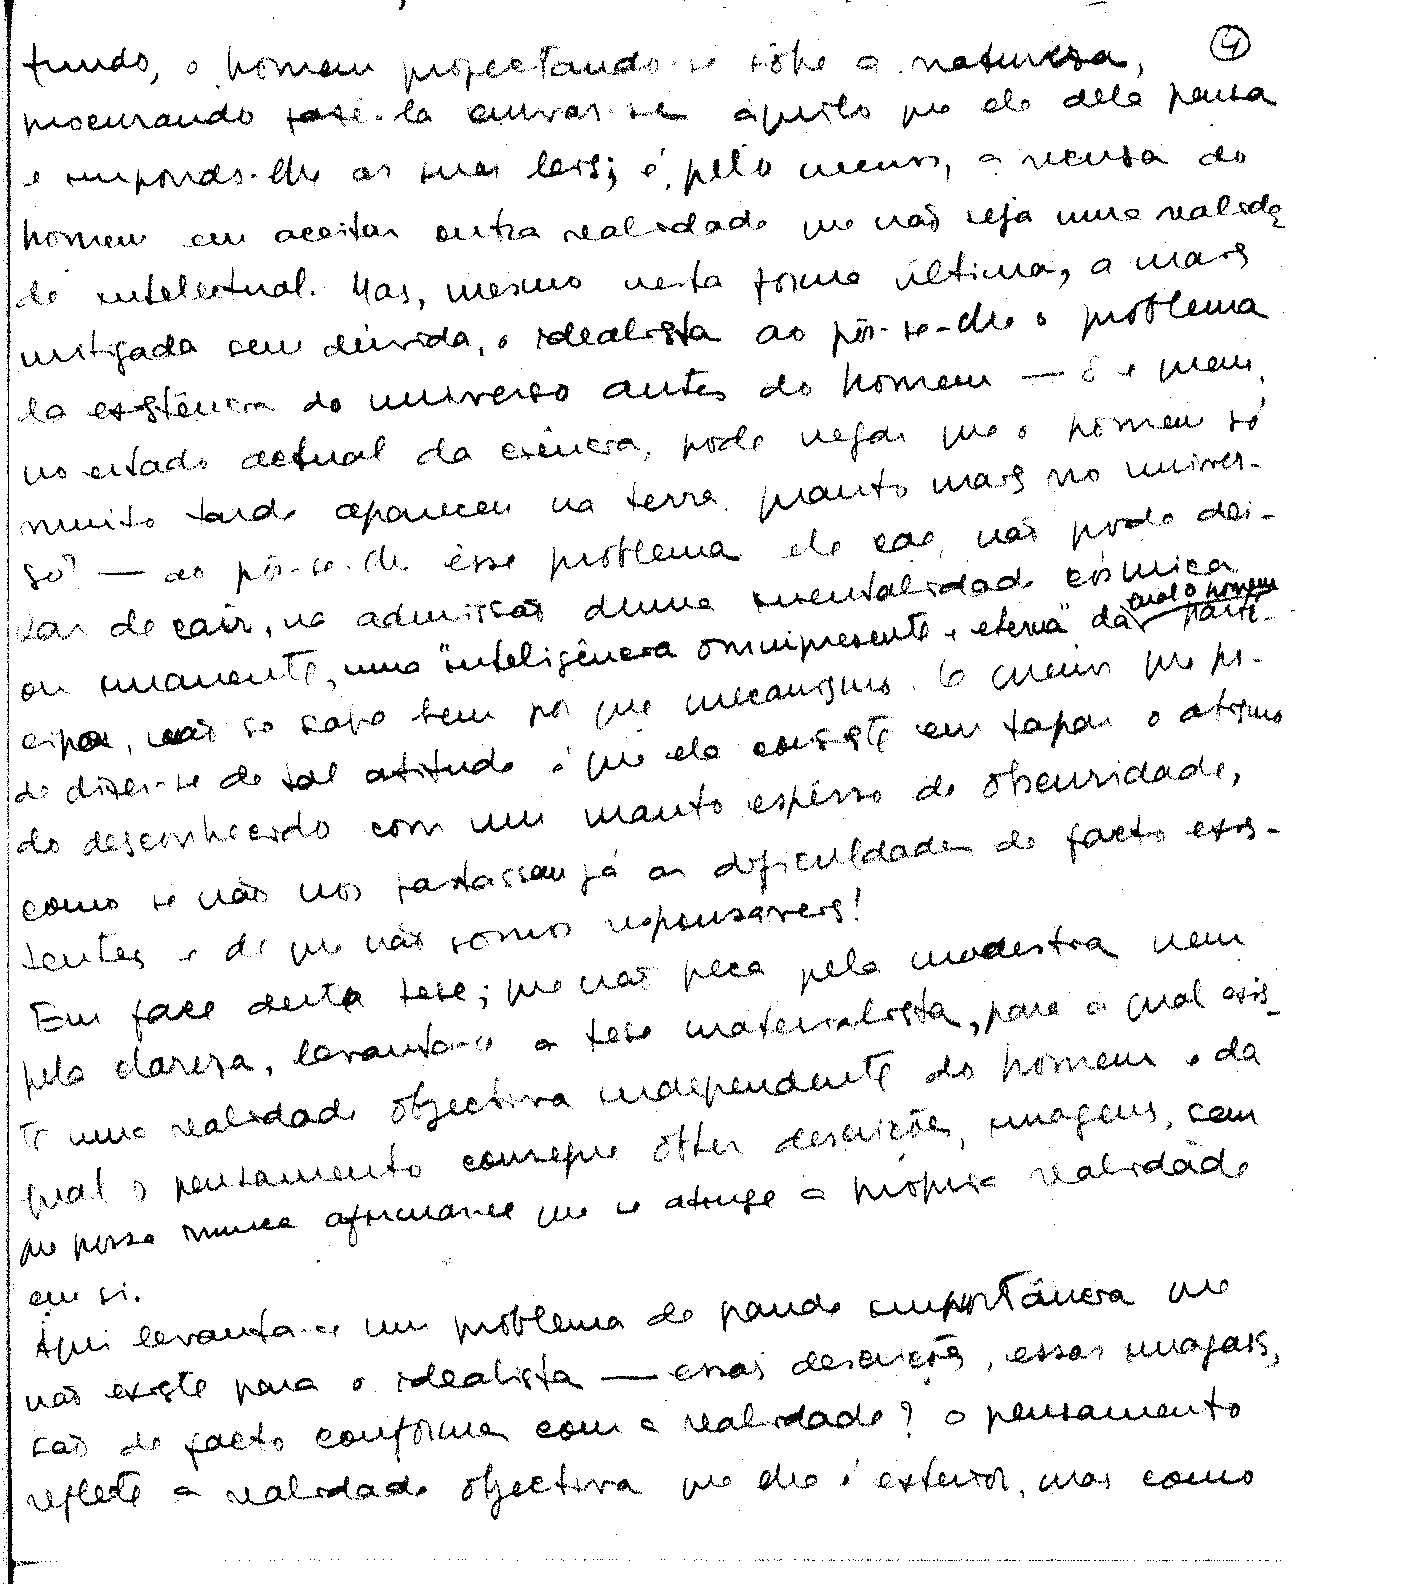 4
fundo, o homem projectando-se sôbre a natureza,
procurando fazê-la curvar-se àquilo que ele dela pensa
e impondo-lhe as suas leis; é, pelo menos, a recusa do
homem em aceitar outra realidade que não seja uma realida
de intelectual. Mas, mesmo nesta forma última, a mais
mitigada sem dúvida, o idealista ao pôr-se-lhe o problema
da existência do universo antes do homem — e quem,
no estado actual da ciência, pode negar que o homem só
muito tarde apareceu na terra quanto mais no univer-
so? — ao pôr-se-lhe êsse problema ele cae, não pode dei-
xar de cair, na admissão duma mentalidade cósmica
ou imanente, uma "inteligência omnipresente e eterna" da qual o homem parti-
cipa, não se sabe bem por que mecanismo. O menos que po-
de dizer-se de tal atitude é que ela consiste em tapar o abismo
do desconhecido com um manto espesso de obscuridade,
como se não nos bastassem já as dificuldades de facto exis-
tentes e de que não somos responsáveis!
Em face desta tese, que não peca pela modestia nem
pela clareza, levanta-se a tese materialista, para a qual exis-
te uma realidade objectiva independente do homem e da
qual o pensamento consegue obter descrições, imagens, sem
que possa nunca afirmar-se que se atinge a própria realidade
em si.
Aqui levanta-se um problema de grande importância que
não existe para o idealista — essas descrições, essas imagens,
são de facto conformes com a realidade? o pensamento
reflete a realidade objectiva que lhe é exterior, mas como